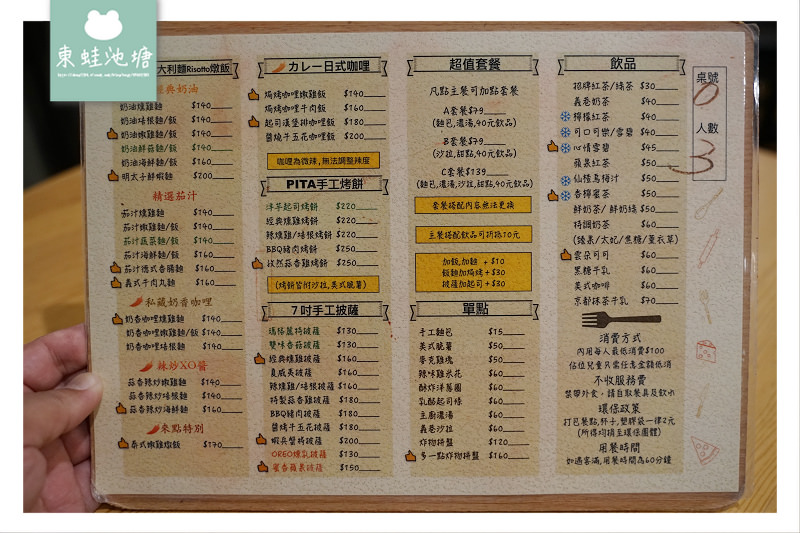 東蛙池塘
大利麵Risotto燉飯
經典奶油
奶油燻雞麵 $140
奶油培根麵/飯 $140
奶油嫩雞麵/飯 $140
奶油鮮菇麵/飯 $140
奶油海鮮麵/飯 $160
明太子鮮蝦麵 $200
精選茄汁
茄汁燻雞麵 $140
茄汁嫩雞麵/飯 $140
茄汁蔬菜麵/飯 $140
茄汁海鮮麵/飯 $160
茄汁德式香腸麵 $160
義式千肉丸麵 $160
私藏奶香咖哩
奶香咖哩燻雞麵 $140
奶香咖哩嫩雞麵/飯 $140
奶香咖哩培根麵 $140
辣炒XO醬
蒜香辣炒嫩雞麵 $140
蒜香辣炒培根麵 $140
蒜香辣炒海鮮麵 $160
來點特別
泰式嫩雞燉飯 $170
カレー日式咖哩
焗烤咖哩嫩雞飯 $140
焗烤咖哩牛肉飯 $160
起司漢堡排咖哩飯 $180
醬燒牛五花咖哩飯 $200
咖哩為微辣,無法調整辣度
PITA手工烤餅
洋芋起司烤餅 $220
經典燻雞烤餅 $220
辣燻雞/培根烤餅 $220
BBQ豬肉烤餅 $250
孜然蒜香雞烤餅 $250
(烤餅皆附沙拉,美式脆薯)
7吋手工披薩
瑪格麗特披薩 $130
雙味香菇披薩 $130
經典燻雞披薩 $160
夏威夷披薩 $160
辣燻雞/培根披薩 $160
特製蒜香雞披薩 $180
BBQ豬肉披薩 $180
醬燒牛五花披薩 $180
蝦兵蟹將披薩 $200
OREO煉乳披薩 $130
蜜香蘋果披薩 $150
超值套餐
凡點主餐可加點套餐
A套餐$79
(麵包,濃湯,40元飲品)
B套餐$79
(沙拉,甜點,40元飲品)
C套餐$139
(麵包,濃湯,沙拉,甜點,40元飲品)
套餐搭配內容無法更換
主餐搭配飲品可折抵10元
加飯,加麵 + $10
飯麵加焗烤 + $30
披薩加起司 + $30
單點
手工麵包 $15
美式脆薯 $50
麥克雞塊 $50
辣味雞米花 $60
酥炸洋蔥圈 $60
乳酪起司條 $60
主廚濃湯 $60
義巷沙拉 $60
炸物拼盤 $120
多一點炸物拼盤 $160
飲品
招牌紅茶/綠茶 $30
義巷奶茶 $40
檸檬紅茶 $40
可口可樂/雪碧 $40
心情雪碧 $45
蘋果紅茶 $50
仙楂烏梅汁 $50
香檸蜜茶 $50
鮮奶茶/鮮奶綠 $50
特調奶茶 $60
(矮素/太妃/黑糖/薰衣草)
雲朵可可 $60
黑糖牛乳 $60
美式咖啡 $60
京都抹茶牛乳 $70
消費方式
內用每人最低消費$100
佔位兒童只需任意金額低消
不收服務費
禁帶外食,請自取餐具及飲水
環保政策
打包餐點,杯子,塑膠袋一律2元
(所得均捐至環保團體)
用餐時間
如遇客滿,用餐時間為60分鐘
桌號
人數
3